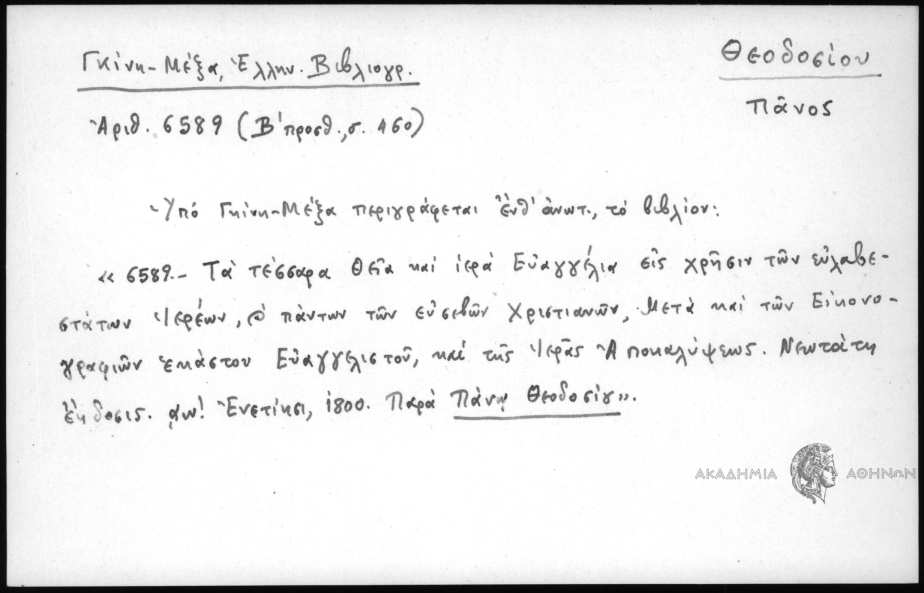 Γκίνη-Μέξα, Ἑλλην. Βιβλιογρ.
Θεοδοσίου
Πᾶνος
Ἀριθ. 6589 (Β' προσθ., σ. 460)
Ὑπό Γκίνη-Μέξα περιγράφεται ἔνθ' ἀνωτ., τό βιβλίον:
« 6589.- Τὰ τέσσαρα Θεῖα καί ἱερά Εὐαγγέλια εἰς χρῆσιν τῶν εὐλαβε-
στάτων Ἱερέων, ϗ πάντων τῶν εὐσεβῶν Χριστιανῶν, Μετά καί τῶν Εἰκονο-
γραφιῶν ἑκάστου Εὐαγγελιστοῦ, καί τῆς Ἱερᾶς Ἀποκαλύψεως. Νεωτάτη
ἔκδοσις. αω! Ἐνετίησι, 1800. Παρά Πάνῳ Θεοδοσίου».
ΑΚΑΔΗΜΙΑ ΑΘΗΝΩΝ